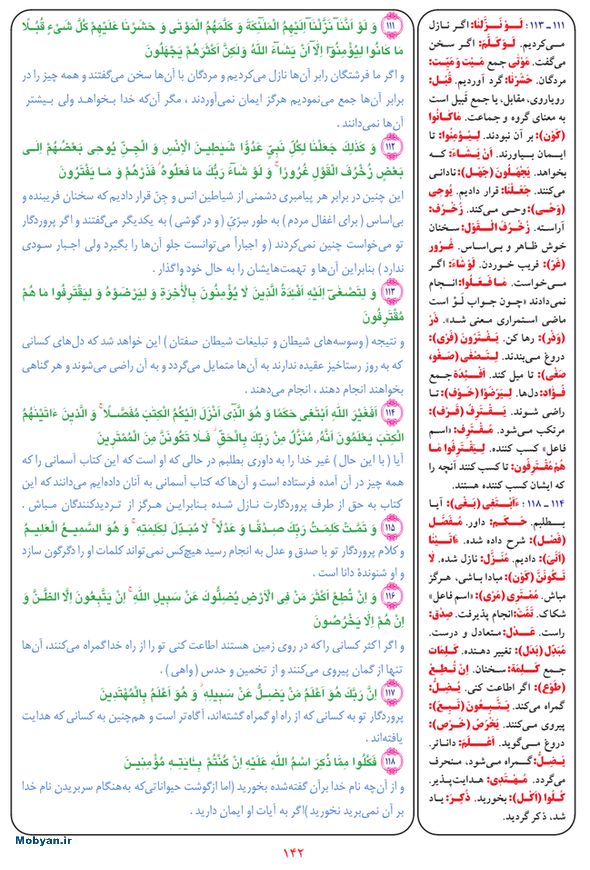 ۱۱۱ وَ لَوْ أَنَّنَا نَزَّلْنَا إِلَيْهِمُ الْمَلَٰئِكَةَ وَ كَلَّمَهُمُ الْمَوْتَى وَ حَشَرْنَا عَلَيْهِمْ كُلَّ شَيْءٍ قُبُلًا
مَا كَانُوا لِيُؤْمِنُوا إِلَّا أَنْ يَشَاءَ اللَّهُ وَلَٰكِنَّ أَكْثَرَهُمْ يَجْهَلُونَ
و اگر ما فرشتگان رابر آن‌ها نازل می‌کردیم و مردگان با آن‌ها سخن می‌گفتند و همه چیز را در
برابر آن‌ها جمع می‌نمودیم هرگز ایمان نمی‌آوردند ، مگر آن‌که خدا بخواهد ولی بیشتر
آن‌ها نمی‌دانند .
۱۱۲ وَ كَذَٰلِكَ جَعَلْنَا لِكُلِّ نَبِيٍّ عَدُوًّا شَيَٰطِينَ الْإِنْسِ وَ الْجِنِّ يُوحِي بَعْضُهُمْ إِلَى
بَعْضٍ زُخْرُفَ الْقَوْلِ غُرُورًا وَ لَوْ شَاءَ رَبُّكَ مَا فَعَلُوهُ فَذَرْهُمْ وَ مَا يَفْتَرُونَ
این چنین در برابر هر پیامبری دشمنی از شیاطین انس و جِنّ قرار دادیم که سخنان فریبنده و
بی‌اساس ( برای اغفال مردم ) به طور سِرّی ( و درگوشی ) به یکدیگر می‌گفتند و اگر پروردگار
تو می‌خواست چنین نمی‌کردند ( و اجباراً می‌توانست جلو آن‌ها را بگیرد ولی اجبار سودی
ندارد ) بنابراین آن‌ها و تهمت‌هایشان را به حال خود واگذار .
۱۱۳ وَ لِتَصْغَىٰ إِلَيْهِ أَفْئِدَةُ الَّذِينَ لَا يُؤْمِنُونَ بِالْآخِرَةِ وَ لِيَرْضَوْهُ وَ لِيَقْتَرِفُوا مَا هُمْ
مُقْتَرِفُونَ
و نتیجه ( وسوسه‌های شیطان و تبلیغات شیطان صفتان ) این خواهد شد که دل‌های کسانی
که به روز رستاخیز عقیده ندارند به آن‌ها متمایل می‌گردد و به آن راضی می‌شوند و هر گناهی
بخواهند انجام دهند ، انجام می‌دهند .
۱۱۴ أَفَغَيْرَ اللَّهِ أَبْتَغِي حَكَمًا وَ هُوَ الَّذِي أَنْزَلَ إِلَيْكُمُ الْكِتَٰبَ مُفَصَّلًا وَ الَّذِينَ ءَاتَيْنَٰهُمُ
الْكِتَٰبَ يَعْلَمُونَ أَنَّهُ مُنَزَّلٌ مِنْ رَبِّكَ بِالْحَقِّ فَلَا تَكُونَنَّ مِنَ الْمُمْتَرِينَ
آیا ( با این حال ) غیر خدا را به داوری بطلبم در حالی که او است که این کتاب آسمانی را که
همه چیز در آن آمده فرستاده است و آن‌ها که کتاب آسمانی به آنان داده‌ایم می‌دانند که این
کتاب به حق از طرف پروردگارت نازل شده بنابراین هرگز از تردیدکنندگان مباش .
۱۱۵ وَ تَمَّتْ كَلِمَتُ رَبِّكَ صِدْقًا وَ عَدْلًا لَا مُبَدِّلَ لِكَلِمَٰتِهِ وَ هُوَ السَّمِيعُ الْعَلِيمُ
و کلام پروردگار تو با صدق و عدل به انجام رسید هیچ‌کس نمی‌تواند کلمات او را دگرگون سازد
و او شنوندهٔ دانا است .
۱۱۶ وَ إِنْ تُطِعْ أَكْثَرَ مَنْ فِي الْأَرْضِ يُضِلُّوكَ عَنْ سَبِيلِ اللَّهِ إِنْ يَتَّبِعُونَ إِلَّا الظَّنَّ وَ
إِنْ هُمْ إِلَّا يَخْرُصُونَ
و اگر اکثر کسانی راکه در روی زمین هستند اطاعت کنی تو را از راه خداگمراه می‌کنند، آن‌ها
تنها از گمان پیروی می‌کنند و از تخمین و حدس (واهی) .
۱۱۷ إِنَّ رَبَّكَ هُوَ أَعْلَمُ مَنْ يَضِلُّ عَنْ سَبِيلِهِ وَ هُوَ أَعْلَمُ بِالْمُهْتَدِينَ
پروردگار تو به کسانی که از راه او گمراه گشته‌اند، آگاه‌تر است و هم‌چنین به کسانی که هدایت
یافته‌اند .
۱۱۸ فَكُلُوا مِمَّا ذُكِرَ اسْمُ اللَّهِ عَلَيْهِ إِنْ كُنْتُمْ بِـَٔايَٰتِهِ مُؤْمِنِينَ
و از آن‌چه نام خدا برآن گفته‌شده بخورید (اما ازگوشت حیواناتی‌که به‌هنگام سربریدن نام خدا
بر آن نمی‌برید نخورید )اگر به آیات او ایمان دارید .
۱۱۱ـ۱۱۳ : لَوْ نَزَّلْنَا: اگر نازل
می‌کردیم. لَوْ كَلَّمَ: اگر سخن
می‌گفت. مَوْتى جمع مَيِت و مَيِّت:
مردگان. حَشَرْنا: گرد آوردیم. قُبُل:
رویاروی، مقابل، یا جمع قبیل است
به معنای گروه و جماعت. ما كانُوا
(كَوْن): بر آن نبودند. لِيُؤْمِنُوا: تا
ایمان بیاورند. أَنْ يَشاءَ: که
بخواهد. يَجْهَلُونَ (جَهْل): نادانی
می‌کنند. جَعَلْنا: قرار دادیم. يُوحِي
(وَحْي): وحی می‌کند. زُخْرُف:
آراسته. زُخْرُفَ الْقَوْل: سخنان
خوش ظاهر و بی‌اساس. غُرُور
(غَرّ): فریب خوردن. لَوْ شاءَ: اگر
می‌خواست. ما فَعَلُوا: انجام
نمی‌دادند «چون جواب لَوْ است
ماضی استمراری معنی شد». ذَرْ
(وَذْر): رها کن. يَفْتَرُونَ (فَرْي):
دروغ می‌بندند. لِتَصْغى (صَغْو،
صَغْي): تا میل کند. أَفْئِدَة جمع
فُؤاد: دل‌ها. لِيَرْضَوْا (خَوْف): تا
راضی شوند. يَقْتَرِفُ (قَرْف):
مرتکب می‌شود. مُقْتَرِف: «اسم
فاعل» کسب کننده. لِيَقْتَرِفُوا ما
هُمْ مُقْتَرِفُونَ: تا کسب کنند آنچه را
که ایشان کسب کننده هستند.
۱۱۴ـ۱۱۸ : ءَأَبْتَغِي (بَغْي): آیا
بطلبم. حَكَم: داور. مُفَصَّل
(فَصْل): شرح داده شده. ءَاتَيْنا
(أَتْي): دادیم. مُنَزَّل: نازل شده. لا
تَكُونَنَّ (كَوْن): مبادا باشی، هرگز
مباش. مُمْتَري (مَرْي): «اسم فاعل»
شکاک. تَمَّتْ: انجام پذیرفت. صِدْق:
راست. عَدْل: متعادل و درست.
مُبَدِّل (بَدَل): تغییر دهنده. كَلِمات
جمع كَلِمَة: سخنان. إِنْ تُطِعْ
(طَوْع): اگر اطاعت کنی. يُضِلُّ:
گمراه می‌کند. يَتَّبِعُونَ (تَبِع):
پیروی می‌کنند. يَخْرُصُ (خَرْص):
دروغ می‌گوید. أَعْلَمُ: داناتر.
يَضِلُّ: گمراه می‌شود، منحرف
می‌گردد. مُهْتَدي: هدایت‌پذیر.
كُلُوا (أَكْل): بخورید. ذُكِرَ: یاد
شد، ذکر گردید.
Mobyan.ir
۱۴۲